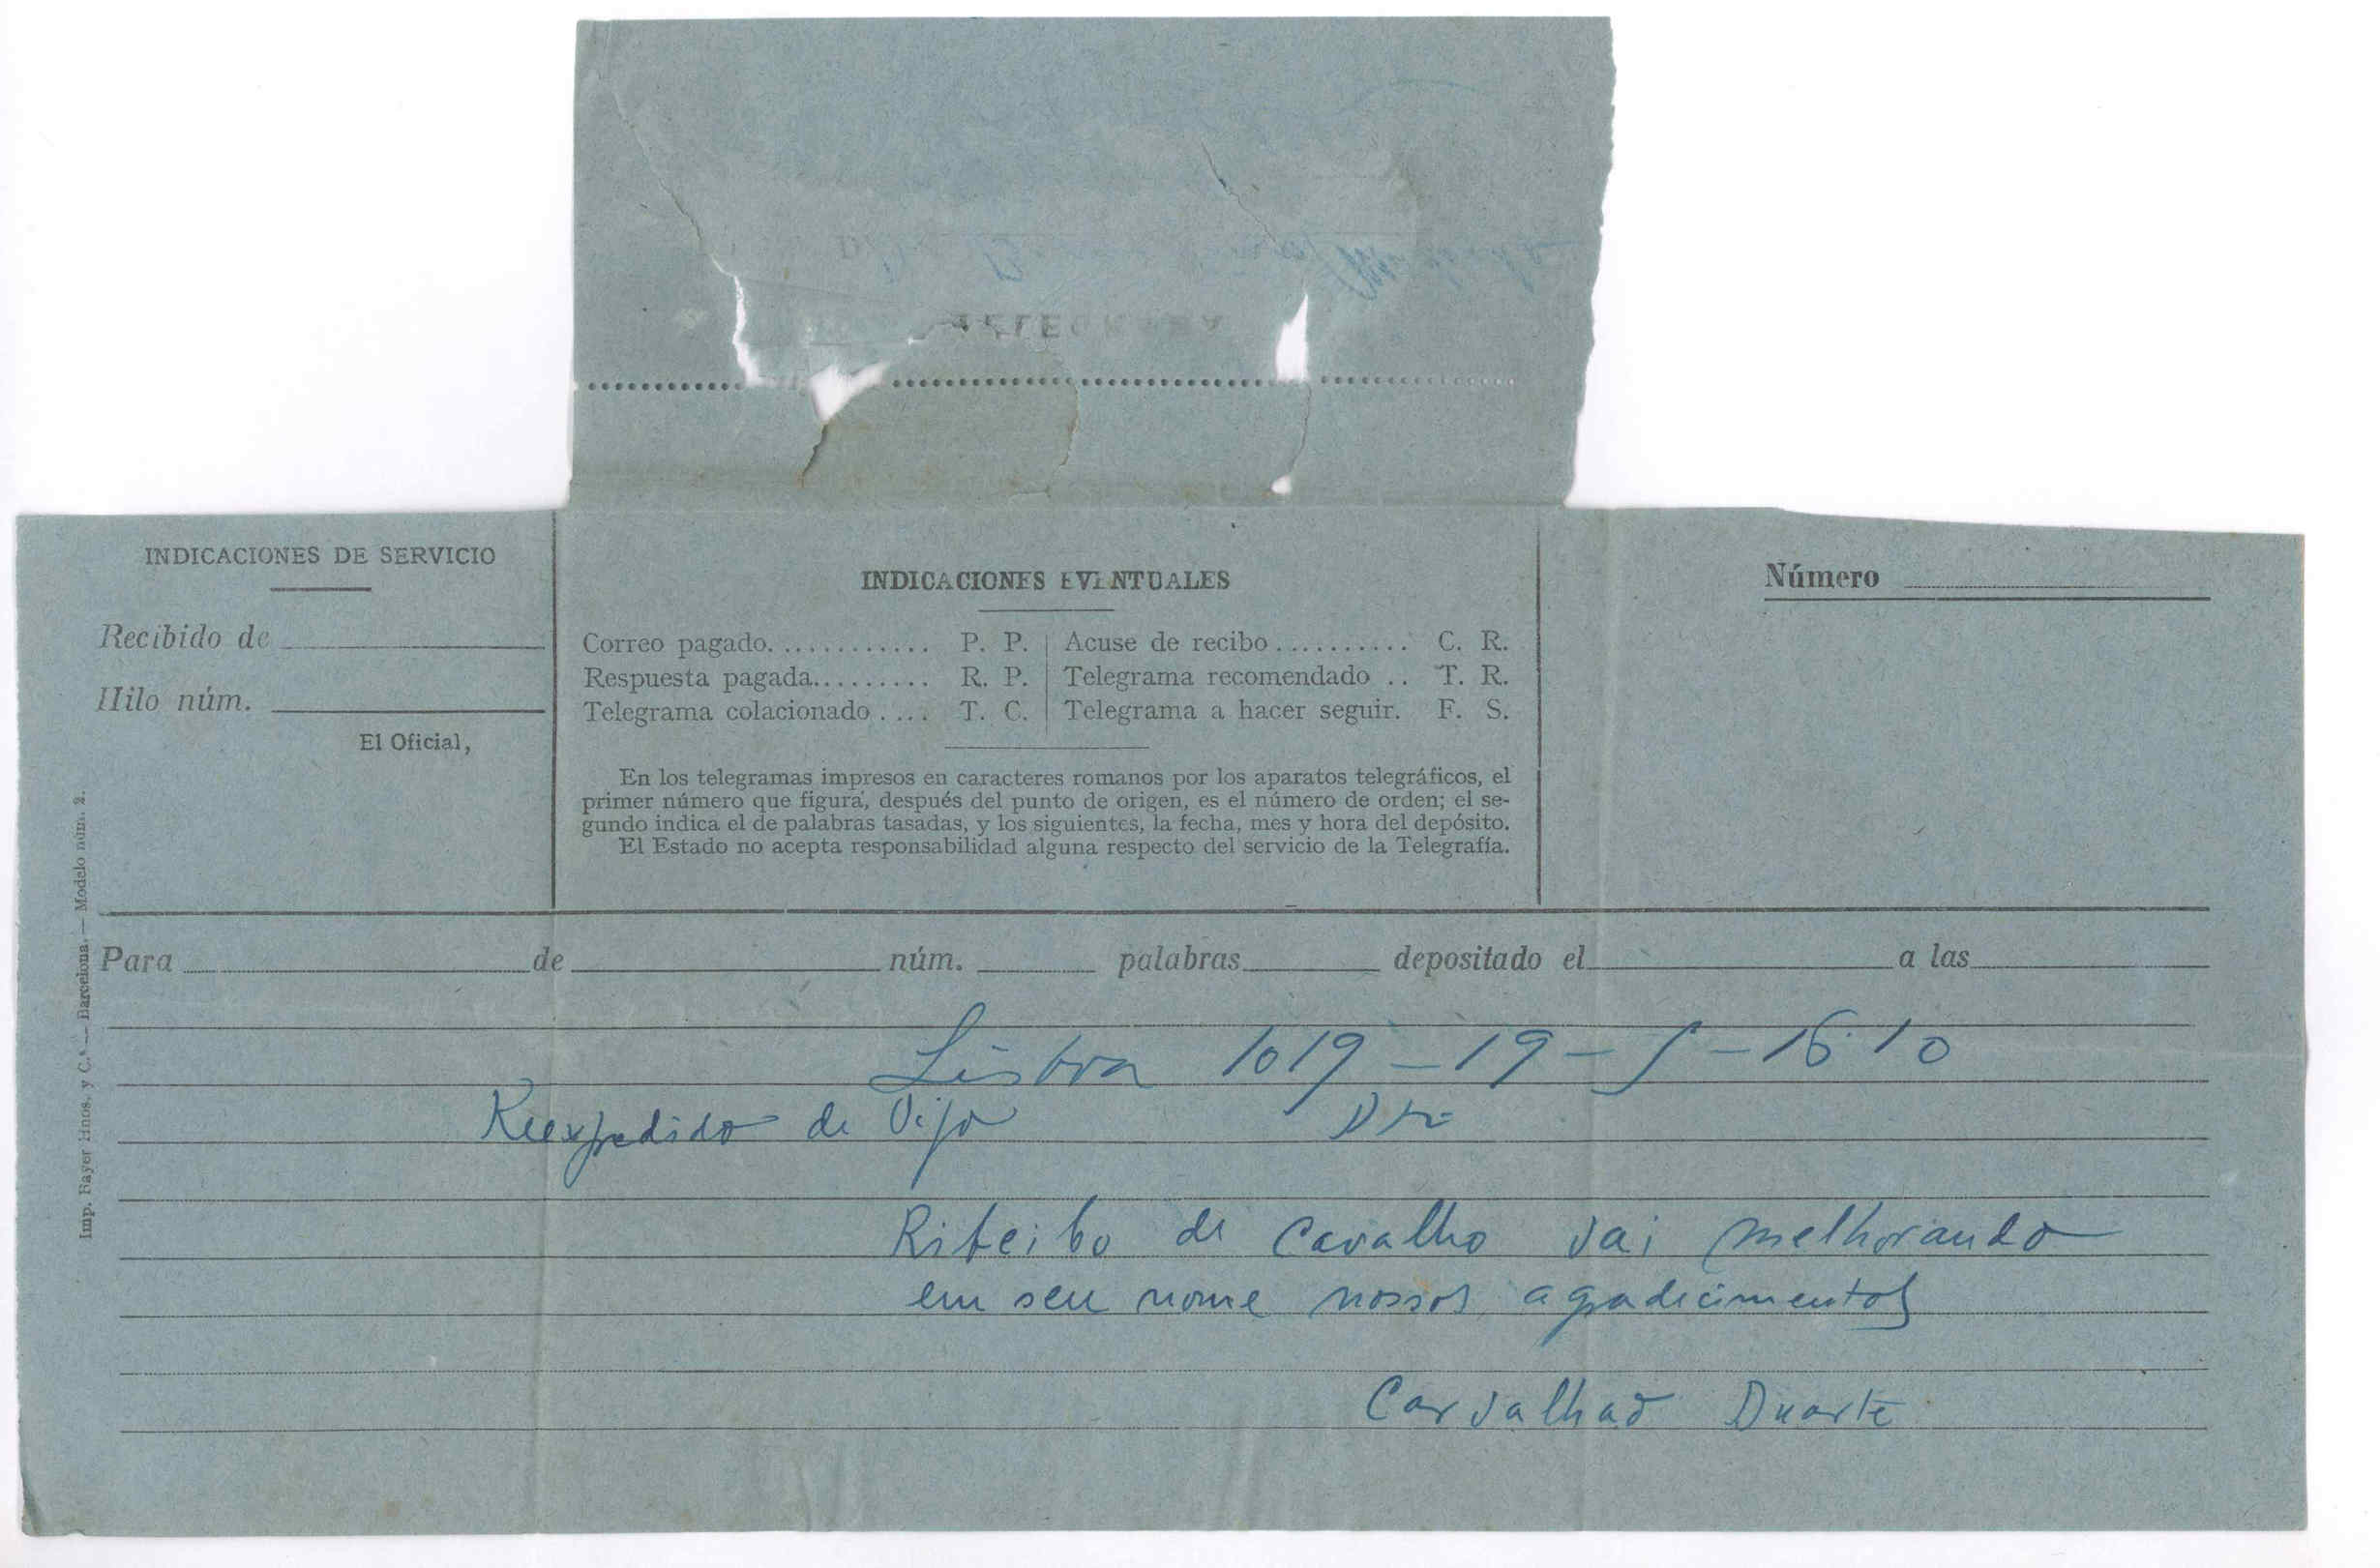 TELEGRAMA
INDICACIONES DE SERVICIO
Recibido de
Hilo núm.
El Oficial,
INDICACIONES EVENTUALES
Correo pagado............ P. P. Acuse de recibo.......... C. R.
Respuesta pagada......... R. P. Telegrama recomendado .. T. R.
Telegrama colacionado .... T. C. Telegrama a hacer seguir. F. S.
En los telegramas impresos en caracteres romanos por los aparatos telegráficos, el
primer número que figura, después del punto de origen, es el número de orden; el se-
gundo indica el de palabras tasadas, y los siguientes, la fecha, mes y hora del depósito.
El Estado no acepta responsabilidad alguna respecto del servicio de la Telegrafía.
Número
Imp. Bayer Hnos. y C.ª — Barcelona. — Modelo núm. 2.
Para de núm. palabras depositado el a las
Lisboa 1019 - 19 - 5 - 16'10
Reexpedido de Vigo
Ribeibo de Cavalho vai melhorando
em seu nome nossos agradecimentos
Carvalhao Duarte